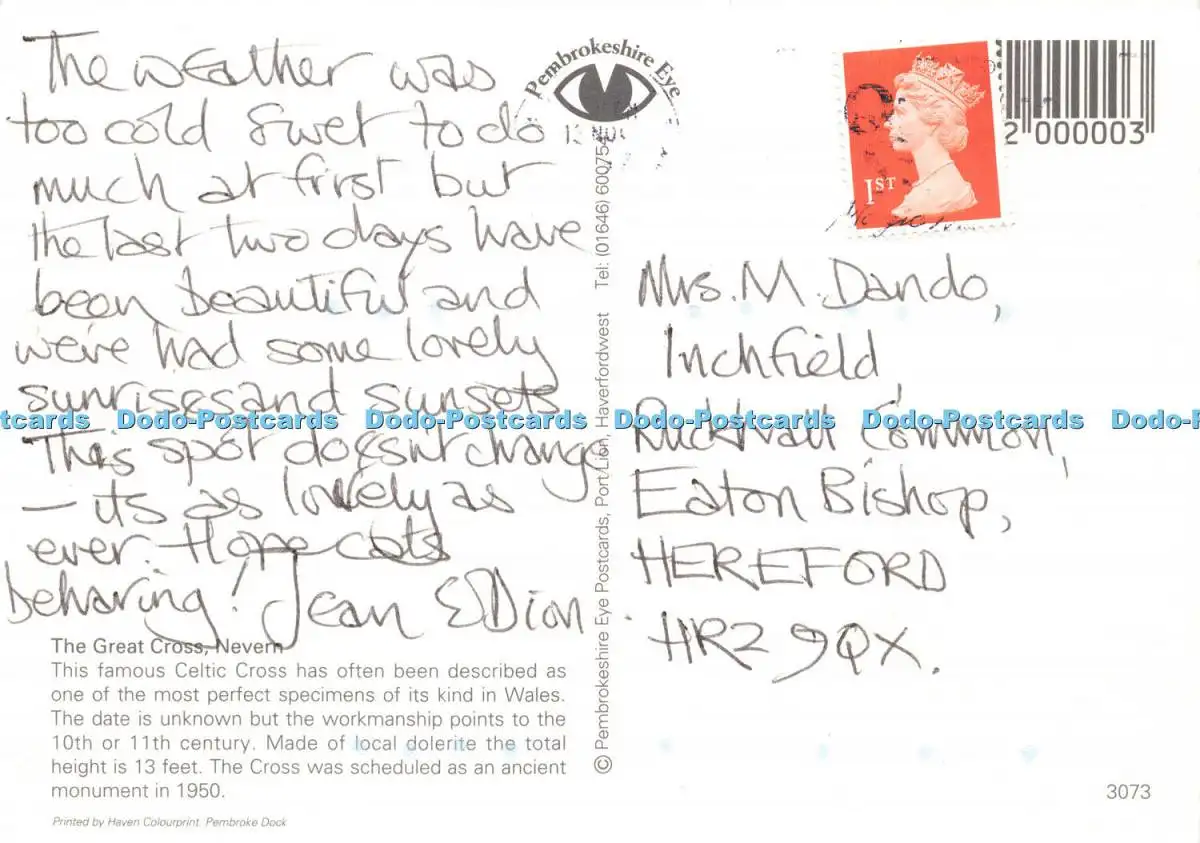 The weather was
too cold & wet to do
much at first but
the last two days have
been beautiful and
we've had some lovely
sunrises and sunsets
This spot doesn't change
– its as lovely as
ever. Hope cats
behaving! Jean & Dion
The Great Cross, Nevern
This famous Celtic Cross has often been described as
one of the most perfect specimens of its kind in Wales.
The date is unknown but the workmanship points to the
10th or 11th century. Made of local dolerite the total
height is 13 feet. The Cross was scheduled as an ancient
monument in 1950.
Printed by Haven Colourprint, Pembroke Dock
Pembrokeshire Eye
13 NOV
© Pembrokeshire Eye Postcards, Port Lion, Haverfordwest Tel: (01646) 600754
1ST
2 000003
Mrs. M. Dando,
Inchfield,
Ruckhall Common,
Eaton Bishop,
HEREFORD
HR2 9QX.
3073
Dodo-Postcards Dodo-Postcards Dodo-Postcards Dodo-Postcards